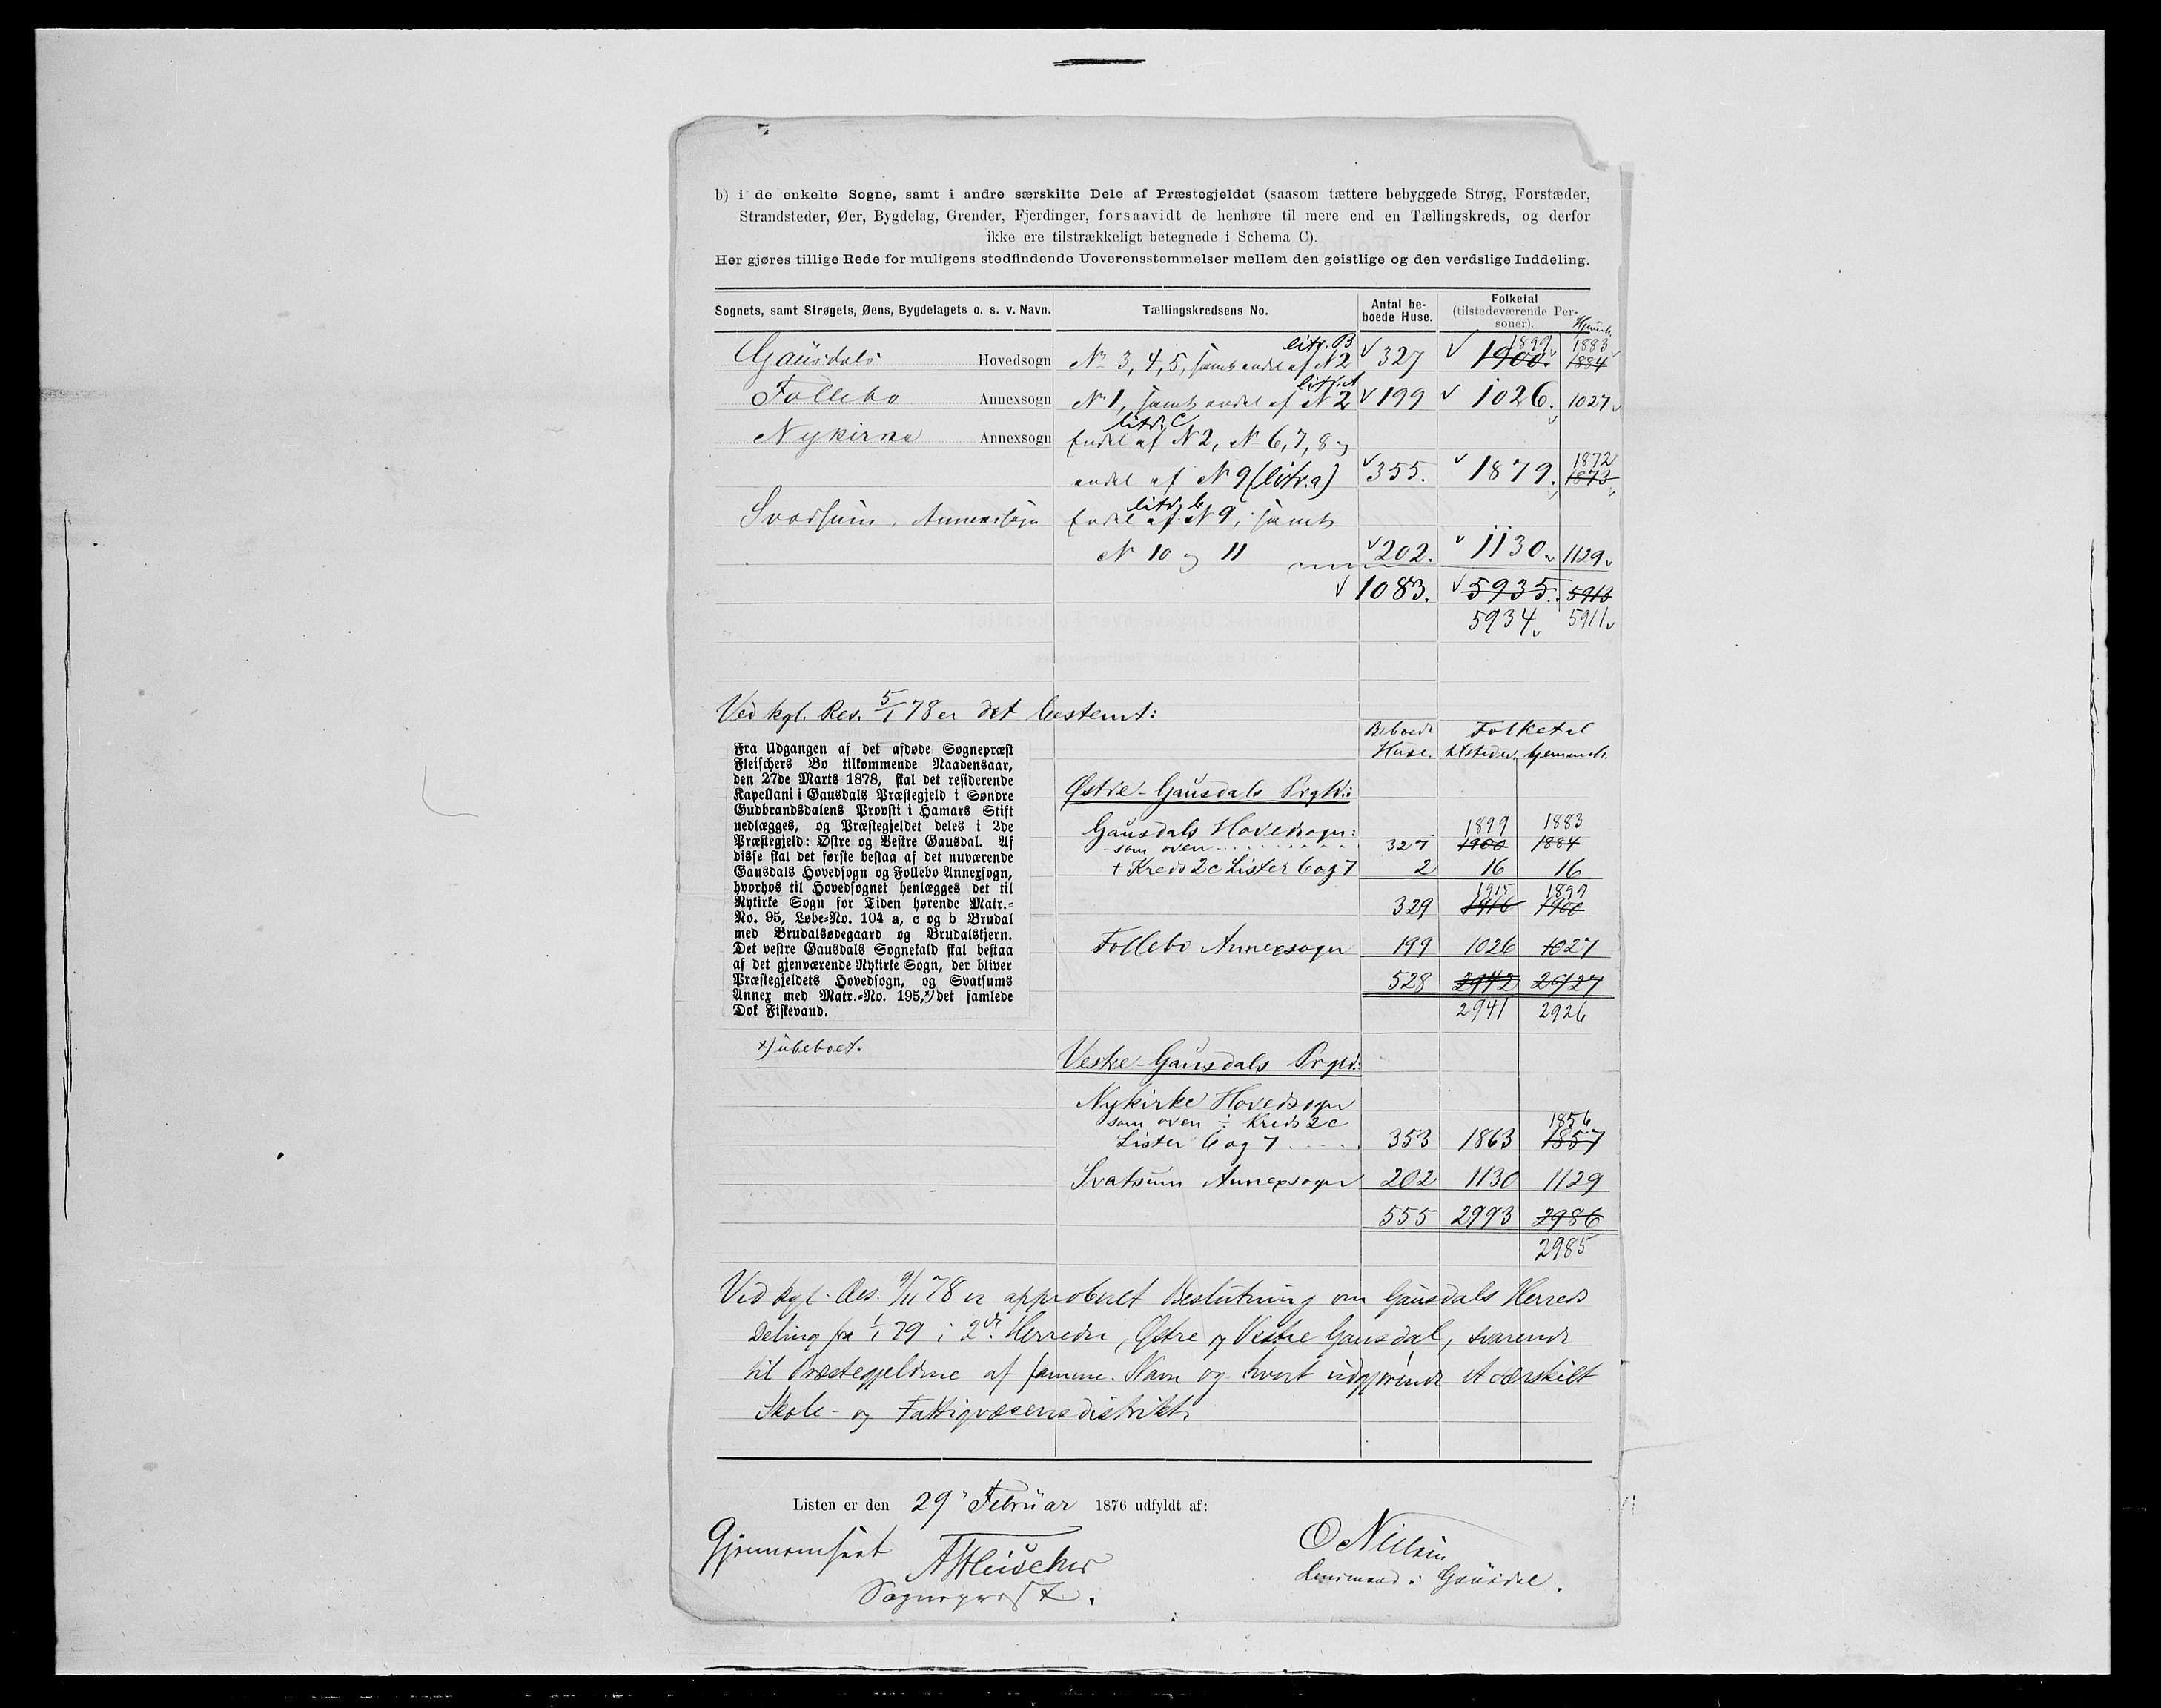 b) i de enkelte Sogne, samt i andre særskilte Dele af Præstegjeldet (saasom tættere bebyggede Strøg, Forstæder,
Strandsteder, Øer, Bygdelag, Grender, Fjerdinger, forsaavidt de henhøre til mere end en Tællingskreds, og derfor
ikke ere tilstrækkeligt betegnede i Schema C).
Her gjøres tillige Rede for muligens stedfindende Uoverensstemmelser mellem den geistlige og den verdslige Inddeling.
Sognets, samt Strøgets, Øens, Bygdelagets o. s. v. Navn. Tællingskredsens No. Antal beboede Huse. Folketal (tilstedeværende Personer).
litr. B 1899 1883
Gausdals Hovedsogn No 3, 4, 5, samt endel af N 2 327 1900 1884
litr. A
Follebo Annexsogn No 1, samt endel af N 2 199 1026. 1027
litr. C
Nykirke Annexsogn Endel af N 2, N 6, 7, 8 og
1872
endel af N 9 (litr. a) 355. 1879. 1873
litr. b
Svatsum, Annexsogn Endel af N 9, samt
N 10 og 11 202. 1130 1129
1083. 5935. 5913
5934 5911
Ved kgl. Res. 5/1 78 er det bestemt:
Beboede Folketal
Huse. tilstedev. hjemmeh.
Fra Udgangen af det afdøde Sognepræst
Fleischers Bo tilkommende Naadensaar,
den 27de Marts 1878, skal det residerende
Kapellani i Gausdals Præstegjeld i Søndre
Gudbrandsdalens Provsti i Hamars Stift
nedlægges, og Præstegjeldet deles i 2de
Præstegjeld: Østre og Vestre Gausdal. Af
disse skal det første bestaa af det nuværende
Gausdals Hovedsogn og Follebo Annexsogn,
hvorhos til Hovedsognet henlægges det til
Nykirke Sogn for Tiden hørende Matr.=
No. 95, Løbe=No. 104 a, c og b Brudal
med Brudalsødegaard og Brudalstjern.
Det vestre Gausdals Sognekald skal bestaa
af det gjenværende Nykirke Sogn, der bliver
Præstegjeldets Hovedsogn, og Svatsums
Annex med Matr.=No. 195,x) det samlede
Dok Fiskevand.
x) ubeboet.
Østre-Gausdals Prgld:
Gausdals Hovedsogn: 1899 1883
som oven 327 1900 1884
+ Kreds 2c Lister 6 og 7 2 16 16
1915 1899
329 1916 1900
Follebo Annexsogn 199 1026 1027
528 2942 2927
2941 2926
Vestre-Gausdals Prgld:
Nykirke Hovedsogn
som oven ÷ Kreds 2c 1856
Lister 6 og 7 353 1863 1857
Svatsum Annexsogn 202 1130 1129
555 2993 2986
2985
Ved kgl. Res. 9/11 78 er approberet Beslutning om Gausdals Herreds
Deling fra 1/1 79 i 2de Herreder, Østre og Vestre Gausdal, svarende
til Præstegjeldene af samme Navn og hvert udgjørende et særskilt
Skole- og Fattigvæsensdistrikt.
Listen er den 29 Februar 1876 udfyldt af:
Gjennemseet
Fleischer
Sognepræst.
O Nielsen
Lensmand i Gausdal.